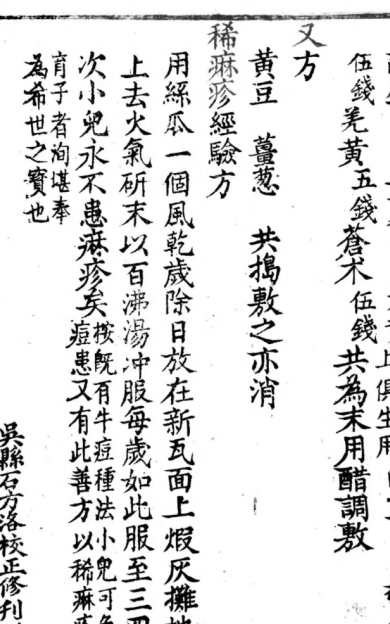 上俱生用
伍錢羌黃五錢蒼木伍錢共為末用醋調敷
又方
黃豆 薑葱 共搗敷之亦消
稀痲疹經驗方
用絲瓜一個風乾歲除日放在新瓦面上煆灰攤
上去火氣研末以百沸湯冲服每歲如此服至三
次小兒永不患痲疹矣按既有牛痘種法小兒可
痘患又有此善方以稀痲
育子者洵堪奉
為希世之寶也
吳縣石方洛校正修刊